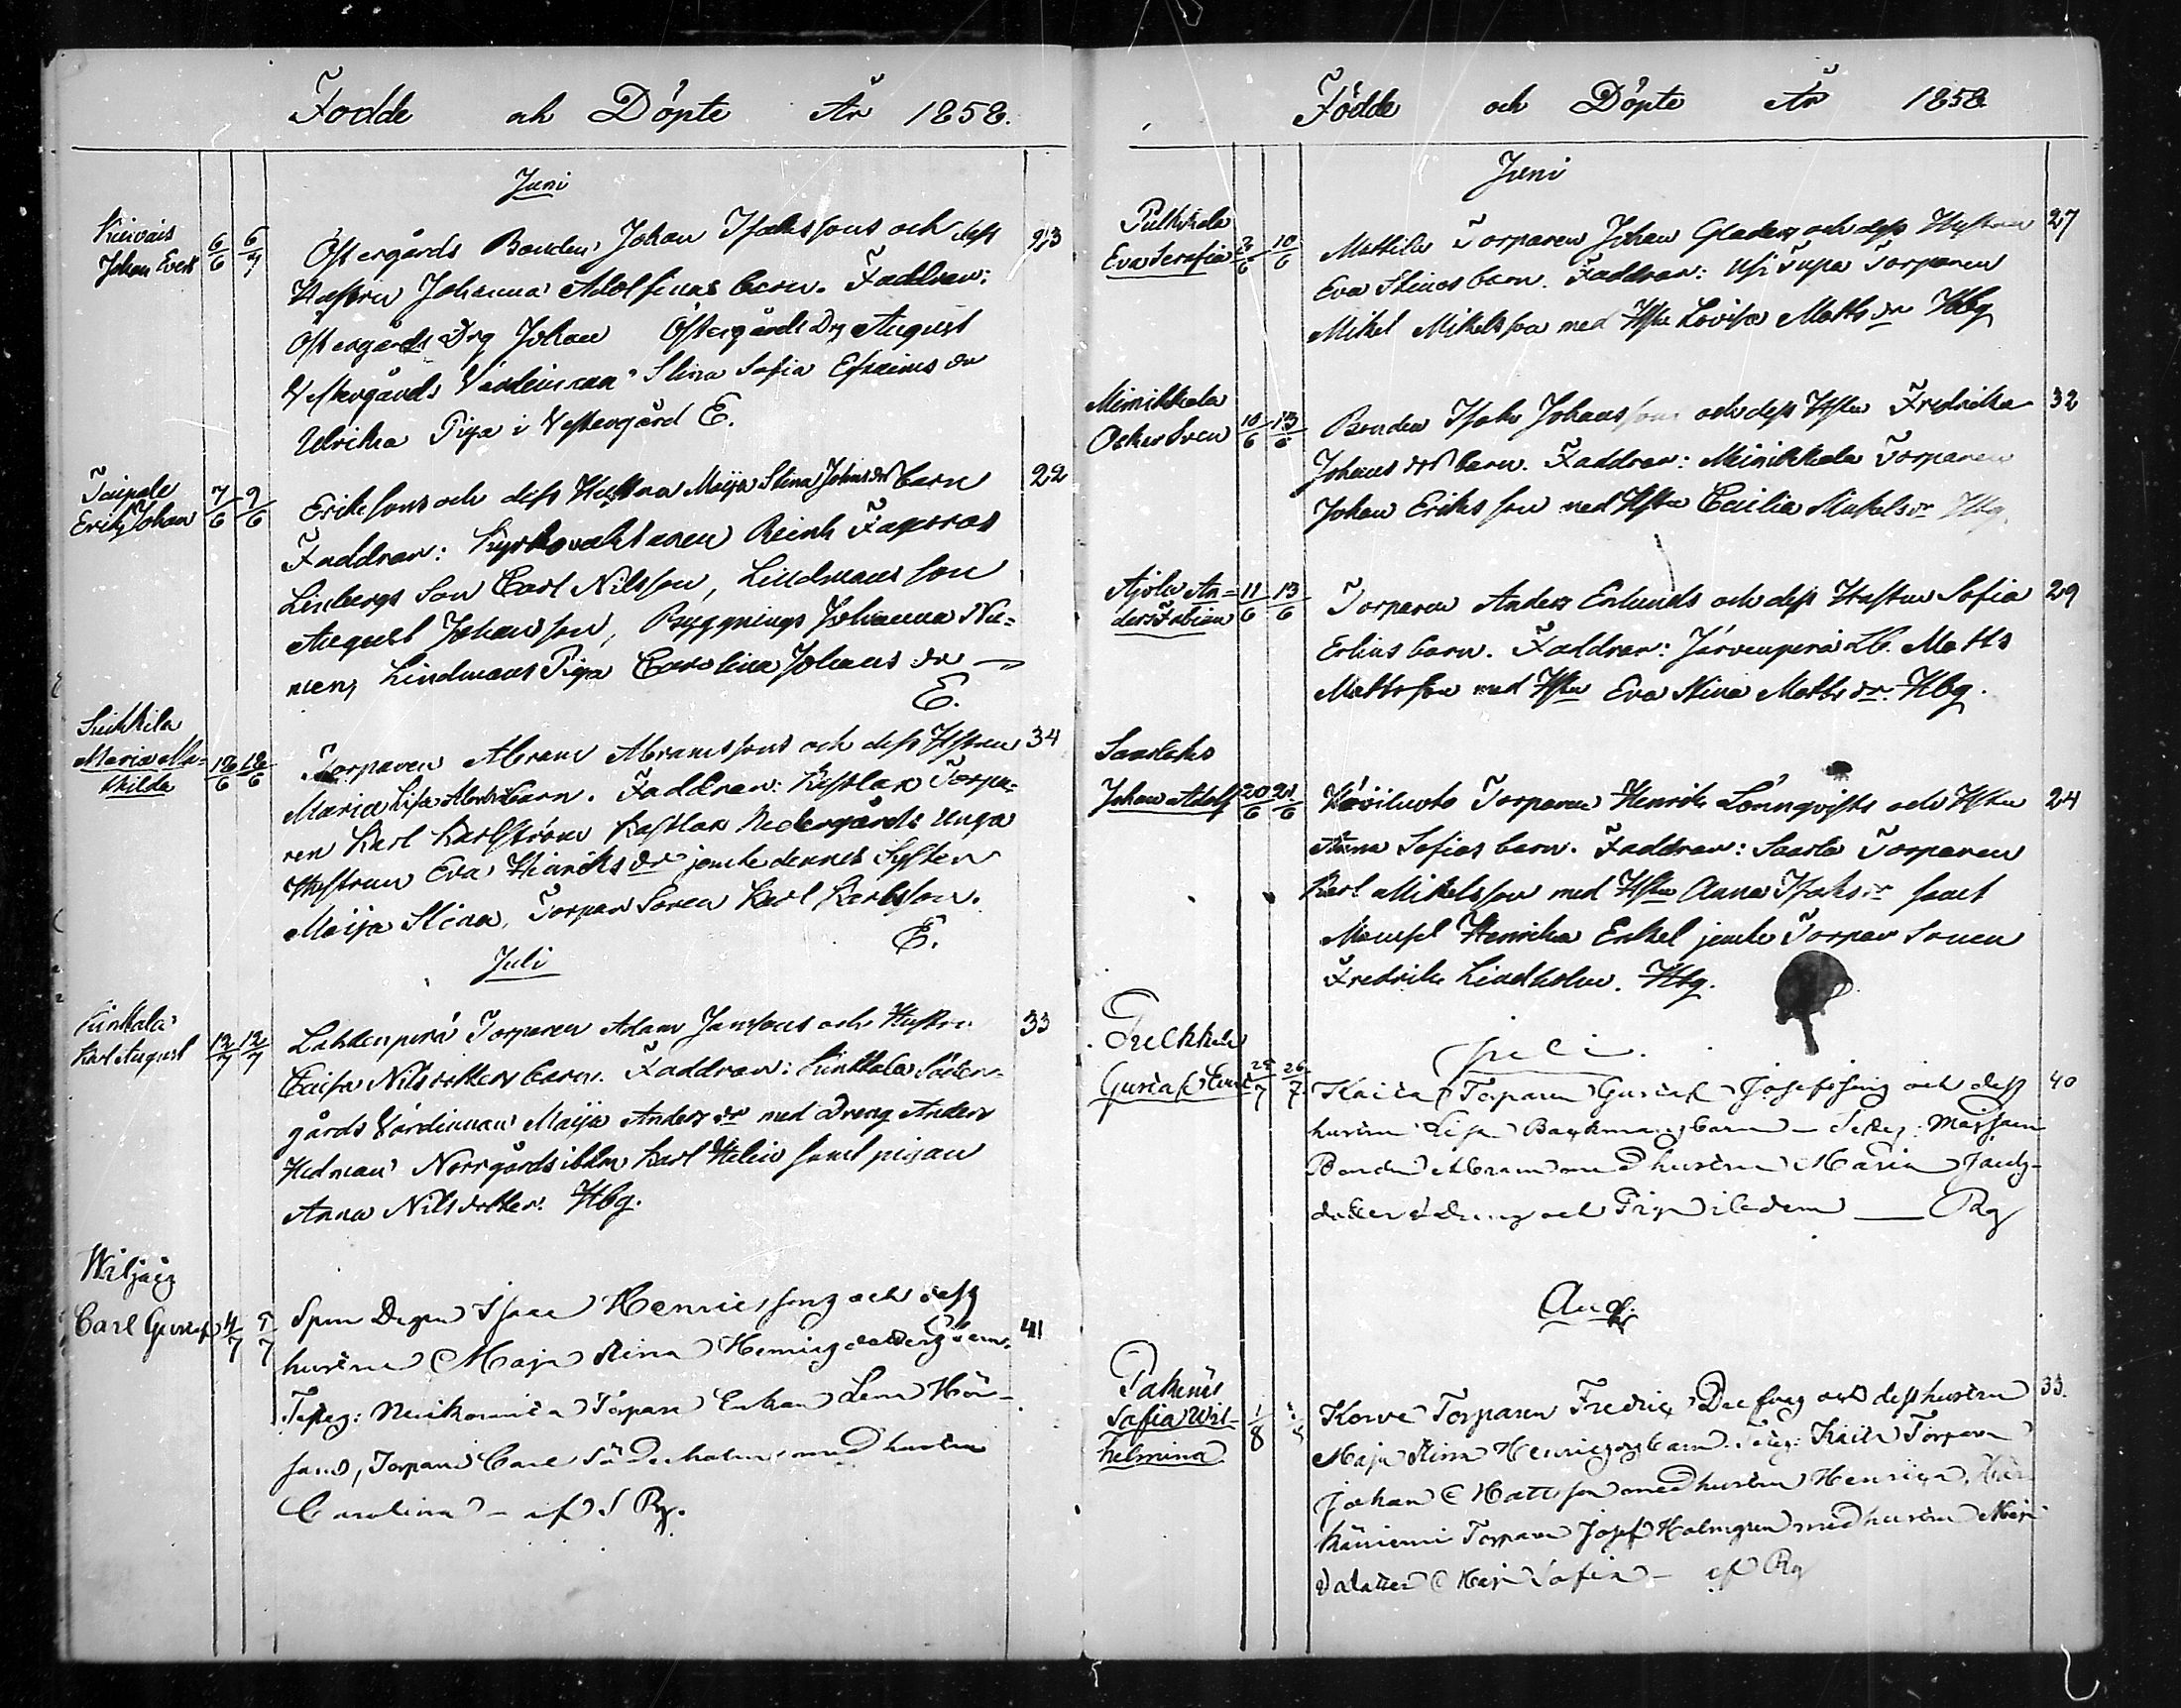 Födde och Döpte År 1858.
Juni
Johan Evert 6/6 6/7
Östergårds Bonden Johan Isakssons och dess 23
Hustru Johanna Adolfinas barn. Faddrar:
Östergårds Drg Johan Östergårds Drg August
Vestergårds Värdinnan Stina Sofia Efraims dr
Ulrika Piga i Vestergård E.
Taipale
Erik Johan 7/6 9/6
Eriksons och dess Hustru Maija Stina Johns dr barn 22
Faddrar: Kyrkovaktaren Reinh Fagerros
Linbergs Son Carl Nilsson, Lindmans son
August Johansson, Byggnings Johanna Nie=
men, Lindmans Piga Carolina Johans dr
E.
Suikkila
Maria Ma=
thilda
Torparen Abram Abramssons och dess Hstru 34
Maria Lisa barn. Faddrar: Torpa=
ren Karl Karlström Nedergårds Unga
Hustrun Eva Hinriks dr jemte dennes Syster
Maija Stina, Torpar Sonen Karl Karlsson.
E.
Juli
Kinkala
Karl August 12/7 12/7
Lahdenperä Torparen Adam Jansons och Hustru 33
Caisa Nilsdotters barn. Faddrar: Kinkala Söder=
gårds Värdinnan Maija Anders dr med Dreng Anders
Hedman Norrgårds ibdm Karl Helin samt pigan
Anna Nilsdotter. Hbg.
Carl Gustaf 4/7 5/7
Isaac Henricssons och dess
hustru Maja Stina Henricsdotters barn. 41
Torpare Enkan Lena
Torparen Carl Söderholm med hustru
Carolina – af S Rg.
Födde och Döpte År 1858
Juni
Pulkkila
Eva Serafia 10/6
Mattila Torparen Johan Glader och dess Hustru 27
Eva Stinas barn. Faddrar: Torparen
Mikel Mikelsson med Hstru Lovisa Matts dr Hbg
Minikkala
Oskar Sven 10/6 13/6
Bonden Isak Johanssons och dess Hstru Fredrika 32
Johans drs barn. Faddrar: Minikkala Torparen
Johan Eriksson med Hstru Cecilia Mikels dr Hbg.
Ajola An=
ders Fabian 11/6 13/6
Torparen Anders Enlunds och dess Hustru Sofia 29
Erlins barn. Faddrar: Järvenperä Lb. Matts
Mattsson med Hstru Eva Stina Matts dr. Hbg.
Johan Adolf 20/6 21/6
Torparen Henrik Lönnqvists och Hstru 24
Anna Sofias barn. Faddrar: Saarto Torparen
Karl Mikelsson med Hstru Anna Isaks dr samt
Mamsel Henrika Enkel jemte Torpar Sonen
Fredrik Lindholm. Hbg.
Juli.
Gustaf 26/7
Kaila Torparen Gustaf Josefssons och dess 40
hustru Lisa Backmans barn – Test:
Bonden Abram med hustru Maria Jacobs-
dotter Dreng och Piga ibidem — Rg
Aug:
Sofia Wil-
helmina 1/8
Korve Torparen Fredric och dess hustru 33.
Maja Stina Henricsdrs barn. Test: Kaila Torparen
Johan Mattsson med hustru Henrica,
Torparen Josef Holmgren med hustru
Maja Sofia – af Rg